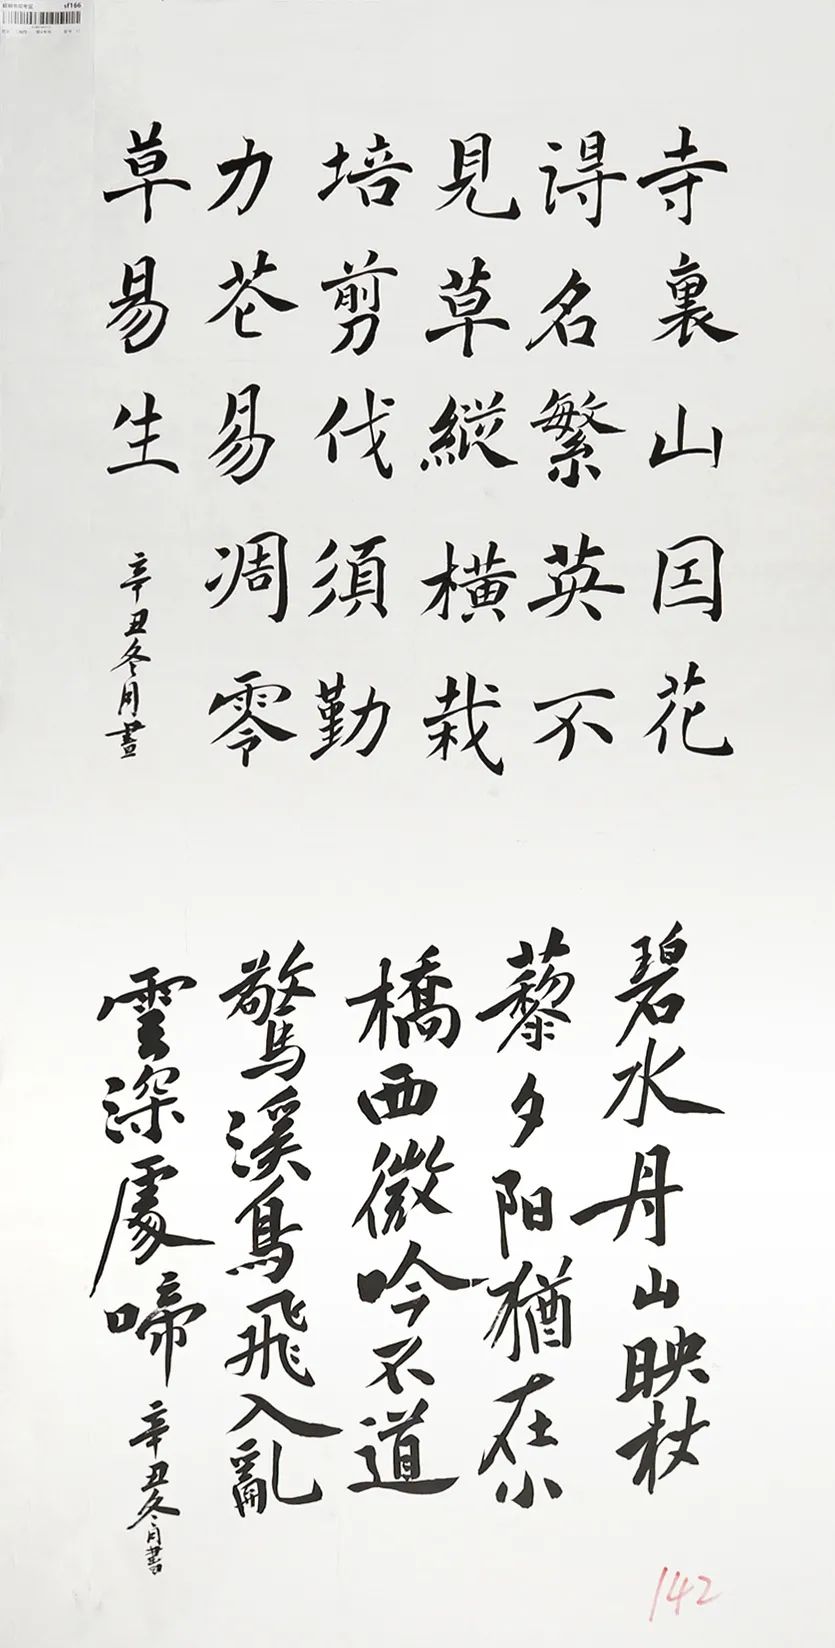 sf166
寺裏山因花
得名繁英不
見草縱橫栽
培剪伐須勤
力花易凋零
草易生
辛丑冬月書
碧水丹山映杖
藜夕阳猶在小
橋西微吟不道
驚溪鳥飛入亂
雲深處啼
辛丑冬月書
142